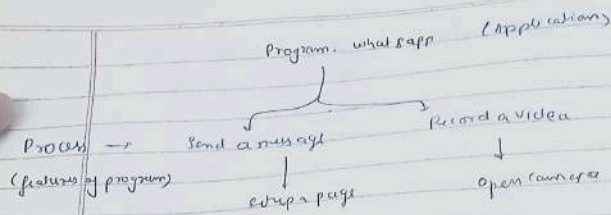 Program. whatsapp (Application)
Process → Send a message Record a videa
(features of program) open camera
page